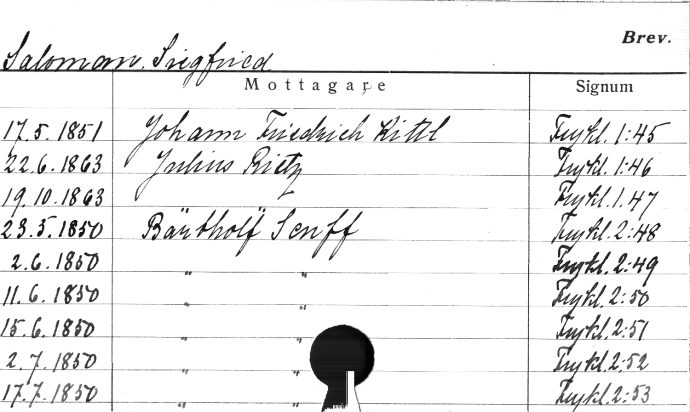 Brev.
Saloman, Siegfried
Mottagare Signum
17.5.1851 Johann Friedrich Kittl Frykl. 1:45
22.6.1863 Julius Rietz Frykl. 1:46
19.10.1863 Frykl. 1.47
23.5.1850 Bärtholf Senff Frykl. 2:48
2.6.1850 " " Frykl. 2:49
11.6.1850 " " Frykl. 2:50
15.6.1850 " " Frykl. 2:51
2.7.1850 " " Frykl. 2:52
17.7.1850 " " Frykl. 2:53